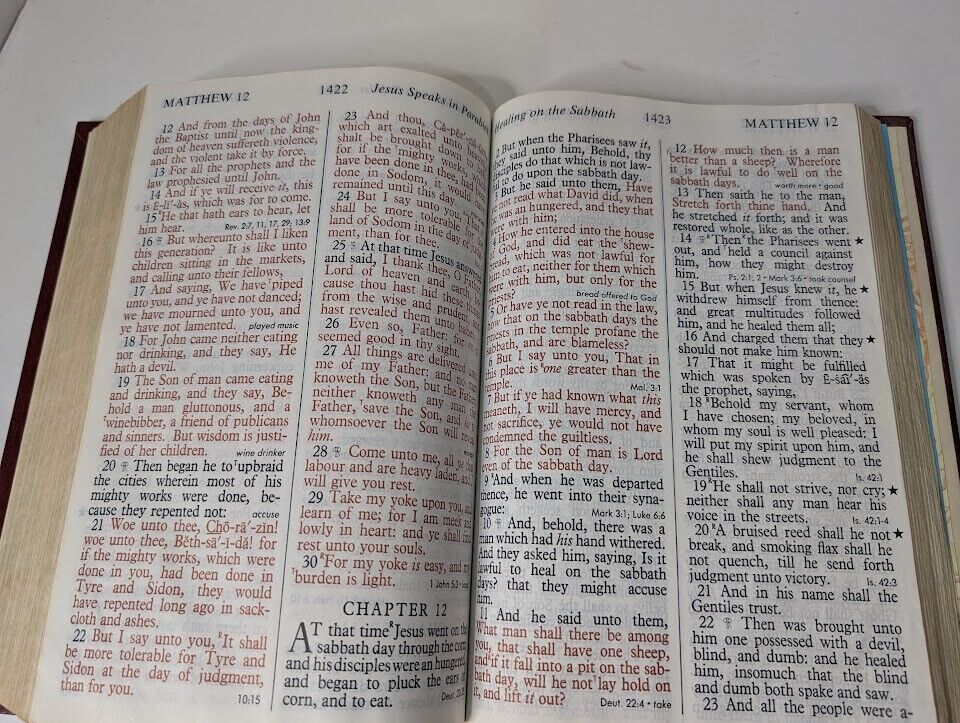 MATTHEW 12
1422
Jesus Speaks in Parables
12 And from the days of John
the Baptist until now the king-
dom of heaven suffereth violence,
and the violent take it by force.
13 For all the prophets and the
law prophesied until John.
14 And if ye will receive it, this
is Ē-lī´-ăs, which was for to come.
15 ᴿHe that hath ears to hear, let
him hear. Rev. 2:7, 11, 17, 29; 13:9
16 But whereunto shall I liken
this generation? It is like unto
children sitting in the markets,
and calling unto their fellows,
17 And saying, We have ᵀpiped
unto you, and ye have not danced;
we have mourned unto you, and
ye have not lamented. played music
18 For John came neither eating
nor drinking, and they say, He
hath a devil.
19 The Son of man came eating
and drinking, and they say, Be-
hold a man gluttonous, and a
ᵀwinebibber, a friend of publicans
and sinners. But wisdom is justi-
fied of her children. wine drinker
20 Then began he to ᵀupbraid
the cities wherein most of his
mighty works were done, be-
cause they repented not: accuse
21 Woe unto thee, Chō-rā´-zin!
woe unto thee, Bĕth-sā´-ĭ-dă! for
if the mighty works, which were
done in you, had been done in
Tyre and Sidon, they would
have repented long ago in sack-
cloth and ashes.
22 But I say unto you, ᴿIt shall
be more tolerable for Tyre and
Sidon at the day of judgment,
than for you. 10:15
23 And thou, Că-pĕr´-
which art exalted unto
shalt be brought down to
for if the mighty works,
have been done in thee, had
done in Sodom, it would
remained until this day.
24 But I say unto you,
shall be more tolerable for
land of Sodom in the day of
ment, than for thee.
25 At that time Jesus answered
and said, I thank thee, O Father,
Lord of heaven and earth,
cause thou hast hid these things
from the wise and prudent,
hast revealed them unto babes.
26 Even so, Father: for so
seemed good in thy sight.
27 All things are delivered
me of my Father: and no man
knoweth the Son, but the Father;
neither knoweth any man the
Father, ᵀsave the Son, and he
whomsoever the Son will reveal
him.
28 Come unto me, all ye
labour and are heavy laden, and
will give you rest.
29 Take my yoke upon you, and
learn of me; for I am meek and
lowly in heart: and ye shall
rest unto your souls.
30 ᴿFor my yoke is easy, and my
burden is light. 1 John 5:3
CHAPTER 12
AT that time ᴿJesus went on the
sabbath day through the corn;
and his disciples were an hungred,
and began to pluck the ears of
corn, and to eat. Deut.
Healing on the Sabbath
1423
MATTHEW 12
But when the Pharisees saw it,
they said unto him, Behold, thy
disciples do that which is not law-
to do upon the sabbath day.
But he said unto them, Have
not read what David did, when
was an hungred, and they that
were with him;
How he entered into the house
God, and did eat the ᵀshew-
which was not lawful for
him to eat, neither for them which
were with him, but only for the
priests? bread offered to God
Or have ye not read in the law,
how that on the sabbath days the
priests in the temple profane the
sabbath, and are blameless?
But I say unto you, That in
this place is ᴿone greater than the
temple. Mal. 3:1
But if ye had known what this
meaneth, I will have mercy, and
sacrifice, ye would not have
condemned the guiltless.
8 For the Son of man is Lord
even of the sabbath day.
9 ᴿAnd when he was departed
thence, he went into their syna-
gogue: Mark 3:1; Luke 6:6
10 And, behold, there was a
man which had his hand withered.
And they asked him, saying, Is it
lawful to heal on the sabbath
days? that they might accuse
him.
11 And he said unto them,
What man shall there be among
you, that shall have one sheep,
and ᴿif it fall into a pit on the sab-
bath day, will he not ᵀlay hold on
it, and lift it out? Deut. 22:4 • take
12 How much then is a man
better than a sheep? Wherefore
it is lawful to do well on the
sabbath days. worth more • good
13 Then saith he to the man,
Stretch forth thine hand. And
he stretched it forth; and it was
restored whole, like as the other.
14 ᴿThen ᵀthe Pharisees went ★
out, and ᵀheld a council against
him, how they might destroy
him. Ps. 2:1, 2 • Mark 3:6 • took counsel
15 But when Jesus knew it, he ★
withdrew himself from thence:
and great multitudes followed
him, and he healed them all;
16 And charged them that they ★
should not make him known:
17 That it might be fulfilled
which was spoken by Ē-ṣāi´-ăs
the prophet, saying,
18 ᴿBehold my servant, whom
I have chosen; my beloved, in
whom my soul is well pleased: I
will put my spirit upon him, and
he shall shew judgment to the
Gentiles. Is. 42:1
19 ᴿHe shall not strive, nor cry; ★
neither shall any man hear his
voice in the streets. Is. 42:1-4
20 ᴿA bruised reed shall he not ★
break, and smoking flax shall he
not quench, till he send forth
judgment unto victory. Is. 42:3
21 And in his name shall the
Gentiles trust.
22 Then was brought unto
him one possessed with a devil,
blind, and dumb: and he healed
him, insomuch that the blind
and dumb both spake and saw.
23 And all the people were a-